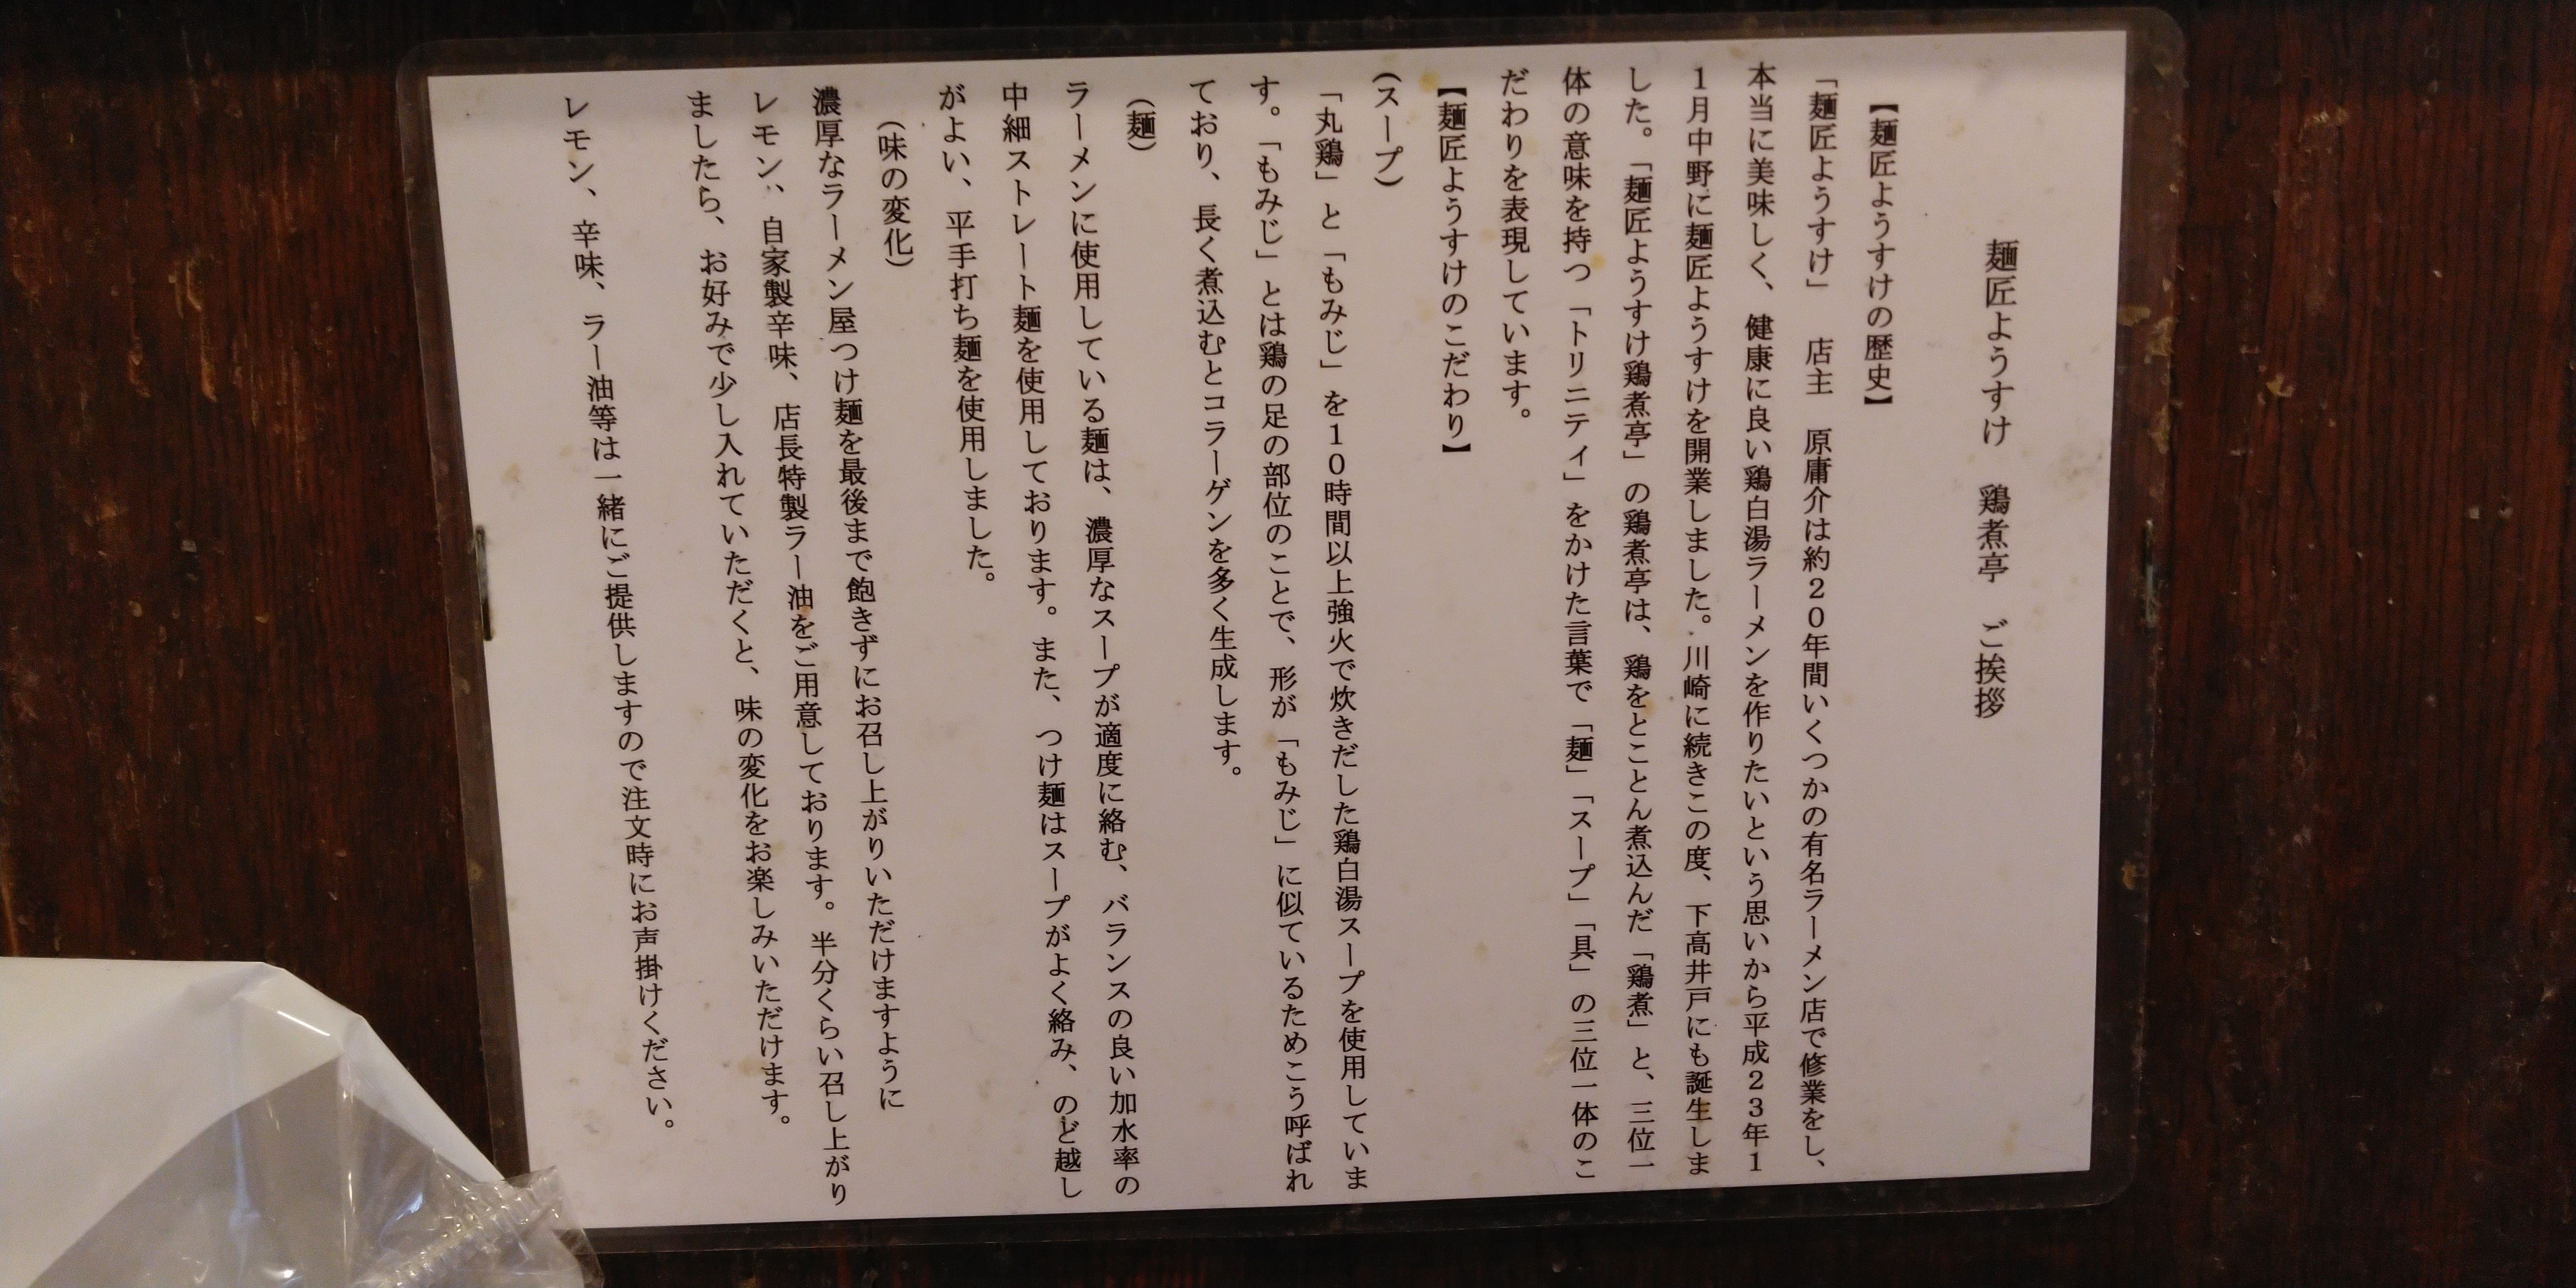 麺匠ようすけ　鶏煮亭　ご挨拶
【麺匠ようすけの歴史】
「麺匠ようすけ」　店主　原庸介は約20年間いくつかの有名ラーメン店で修業をし、
本当に美味しく、健康に良い鶏白湯ラーメンを作りたいという思いから平成23年1
1月中野に麺匠ようすけを開業しました。川崎に続きこの度、下高井戸にも誕生しま
した。「麺匠ようすけ鶏煮亭」の鶏煮亭は、鶏をとことん煮込んだ「鶏煮」と、三位一
体の意味を持つ「トリニティ」をかけた言葉で「麺」「スープ」「具」の三位一体のこ
だわりを表現しています。
【麺匠ようすけのこだわり】
（スープ）
「丸鶏」と「もみじ」を10時間以上強火で炊きだした鶏白湯スープを使用していま
す。「もみじ」とは鶏の足の部位のことで、形が「もみじ」に似ているためこう呼ばれ
ており、長く煮込むとコラーゲンを多く生成します。
（麺）
ラーメンに使用している麺は、濃厚なスープが適度に絡む、バランスの良い加水率の
中細ストレート麺を使用しております。また、つけ麺はスープがよく絡み、のど越し
がよい、平手打ち麺を使用しました。
（味の変化）
濃厚なラーメン屋つけ麺を最後まで飽きずにお召し上がりいただけますように
レモン、自家製辛味、店長特製ラー油をご用意しております。半分くらい召し上がり
ましたら、お好みで少し入れていただくと、味の変化をお楽しみいただけます。
レモン、辛味、ラー油等は一緒にご提供しますので注文時にお声掛けください。